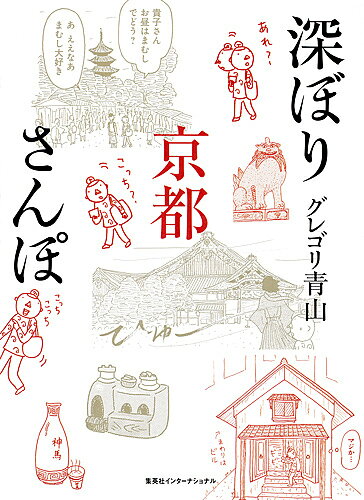 深ぼり
京都
さんぽ
グレゴリ青山
貴子さん
お昼はまむし
でどう?
あ ええなあ
まむし大好き
あれ?
こっち?
こっち
こっち
ひゅー
神馬
まわりは
ビル
マジか…
集英社インターナショナル